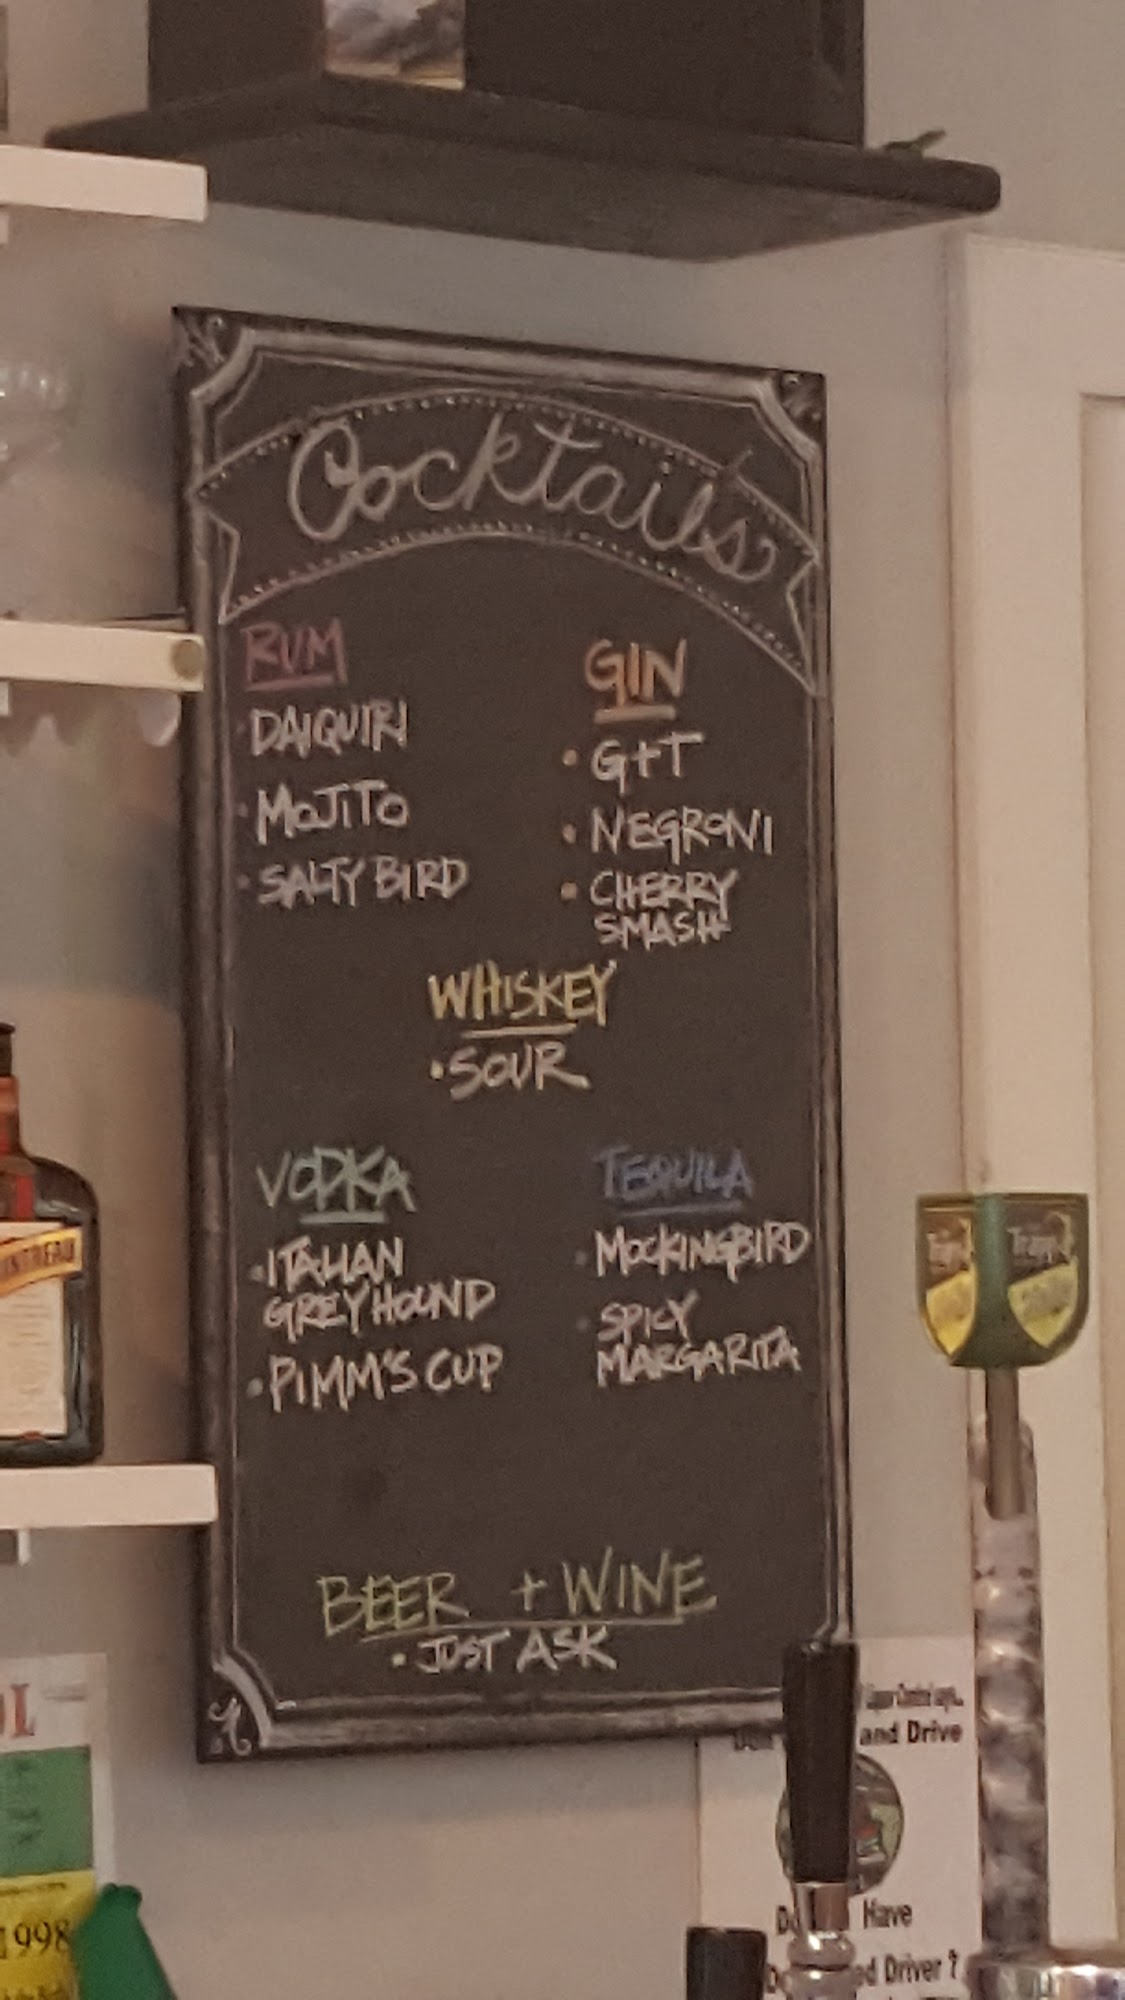 Cocktails
RUM
• DAIQUIRI
• MOJITO
• SALTY BIRD
GIN
• G+T
• NEGRONI
• CHERRY
SMASH
WHISKEY
• SOUR
VODKA
• ITALIAN
GREYHOUND
• PIMM'S CUP
TEQUILA
• MOCKINGBIRD
• SPICY
MARGARITA
BEER + WINE
• JUST ASK
and Drive
Have
Driver ?
1998